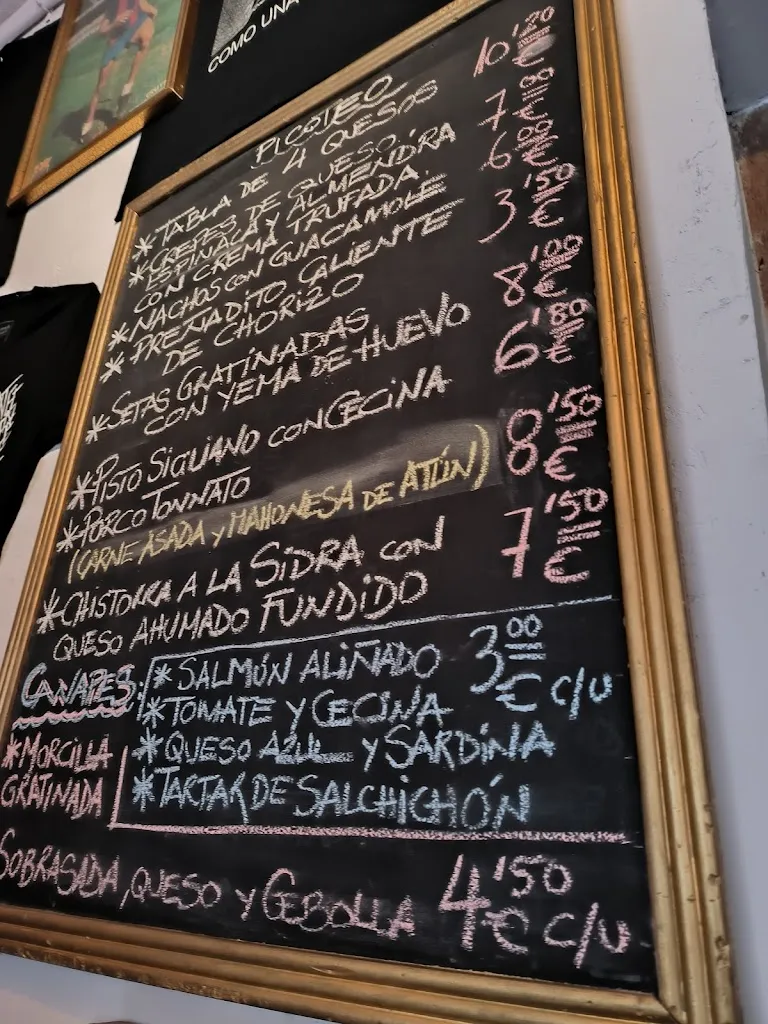 COMO UNA
PICOTEO
* TABLA DE 4 QUESOS 10'20 €
* CREPES DE QUESO, 7'00 €
ESPINACA Y ALMENDRA
CON CREMA TRUFADA.
* NACHOS CON GUACAMOLE 6'00 €
* PREÑADITO CALIENTE 3'50 €
DE CHORIZO
* SETAS GRATINADAS 8'00 €
CON YEMA DE HUEVO
* PISTO SIGLIANO CON CECINA 6'80 €
* PORCO TONNATO 8'50 €
(CARNE ASADA Y MAHONESA DE ATÚN)
* CHISTORRA A LA SIDRA CON 7'50 €
QUESO AHUMADO FUNDIDO
CANAPES: * SALMÚN ALIÑADO 3'00 € C/U
* TOMATE Y CECINA
* QUESO AZUL Y SARDINA
* TARTAR DE SALCHICHÓN
* MORCILLA
GRATINADA
SOBRASADA, QUESO Y CEBOLLA 4'50 € C/U